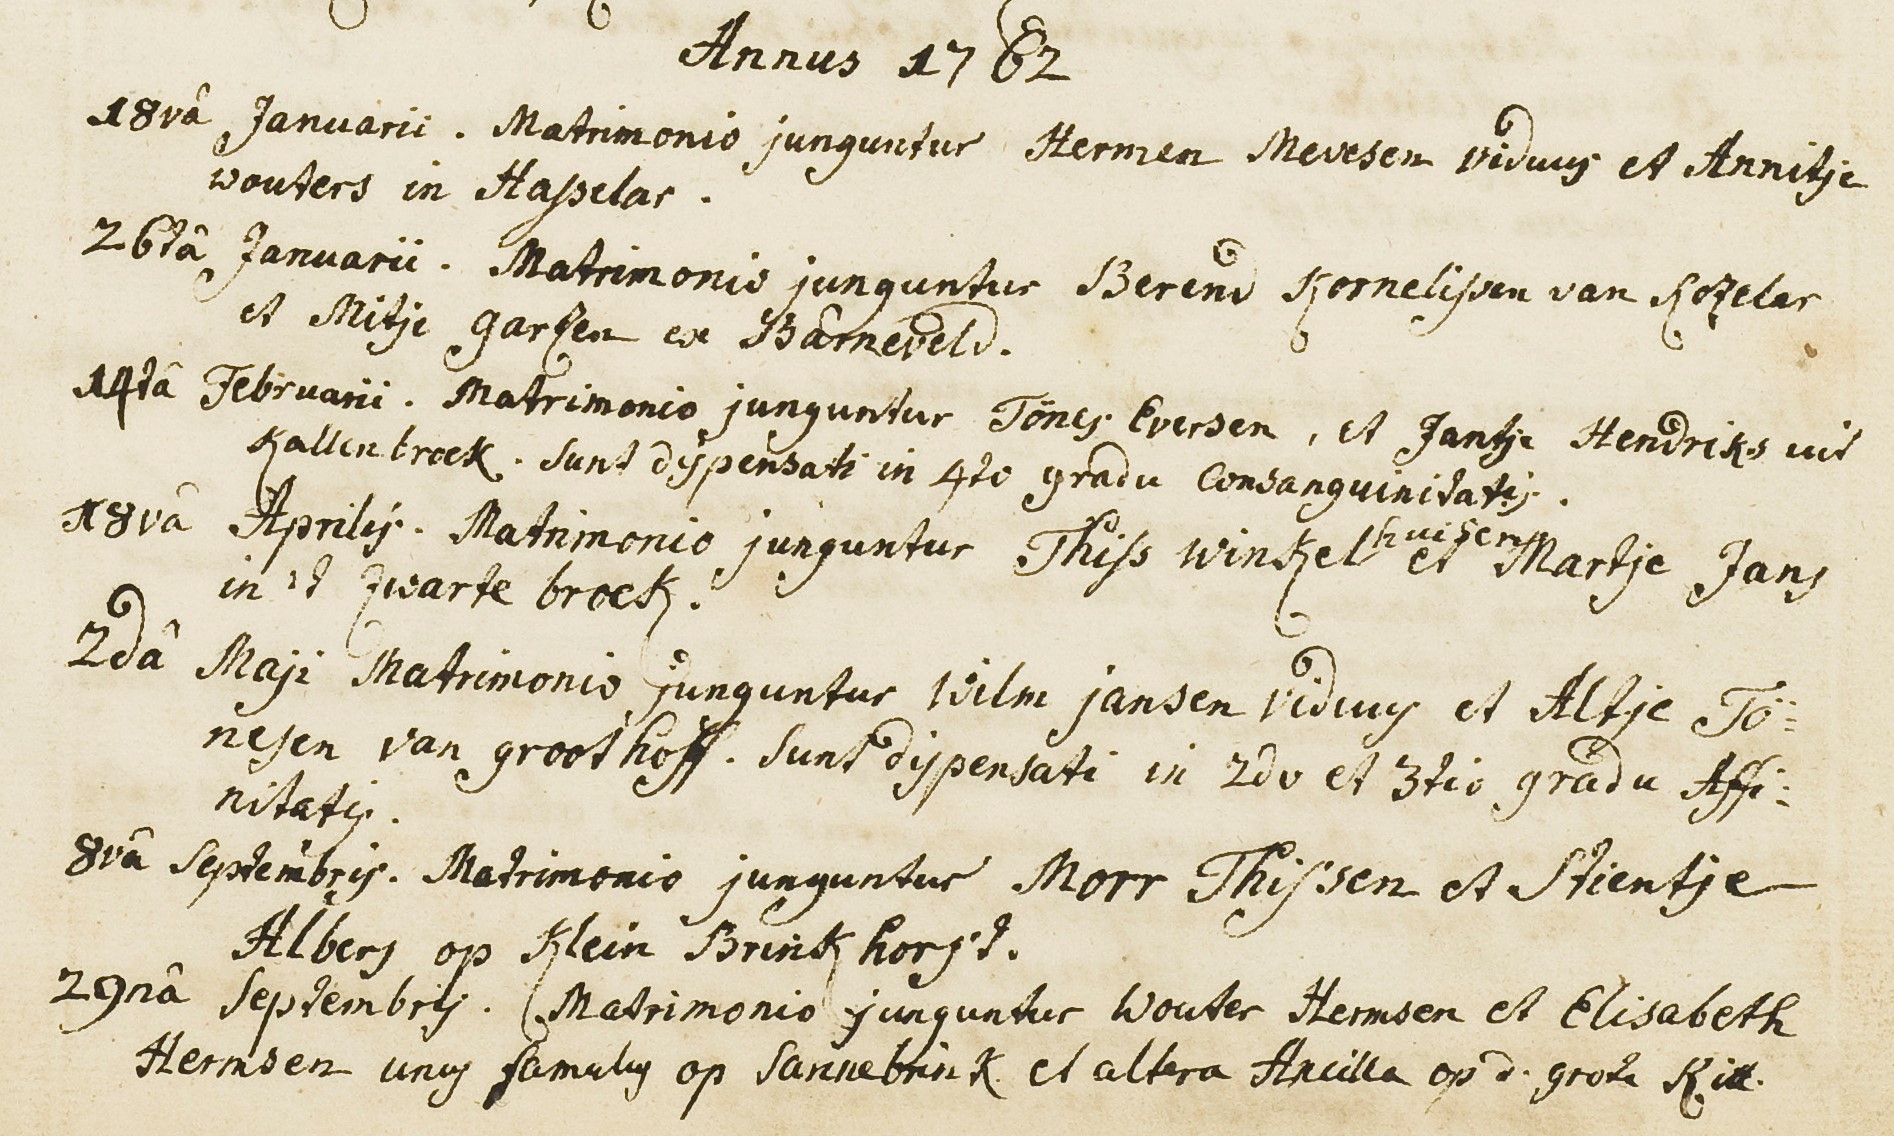 Annus 1762
18vâ Januarii. Matrimonio junguntur Hermen Mevesen viduus et Annitje
wouters in Hasselar.
26tâ Januarii. Matrimonio junguntur Berend Kornelissen van Kotelar
et Mitje garsen ex Bârneveld.
14tâ Februarii. Matrimonio junguntur Tönes Eversen, et Jantje Hendriks uit
Kallenbroek. sunt dispensati in 4to gradu Consanguinitatis.
18vâ Aprilis. Matrimonio junguntur Thiss winkelhuisen et Martje Jans
in 't zwarte broek.
2dâ Maji Matrimonio junguntur Wilm jansen viduus et Altje Tö=
nesen van groothoff. sunt dispensati in 2do et 3tio gradu Affi=
nitatis.
8vâ septembris. Matrimonio junguntur Morr Thissen et Stientje
Albers op Klein Brinkhorst.
29nâ septembris. Matrimonio junguntur Wouter Hermsen et Elisabeth
Hermsen unus famulus op sannebrink et altera Ancilla op d. grote